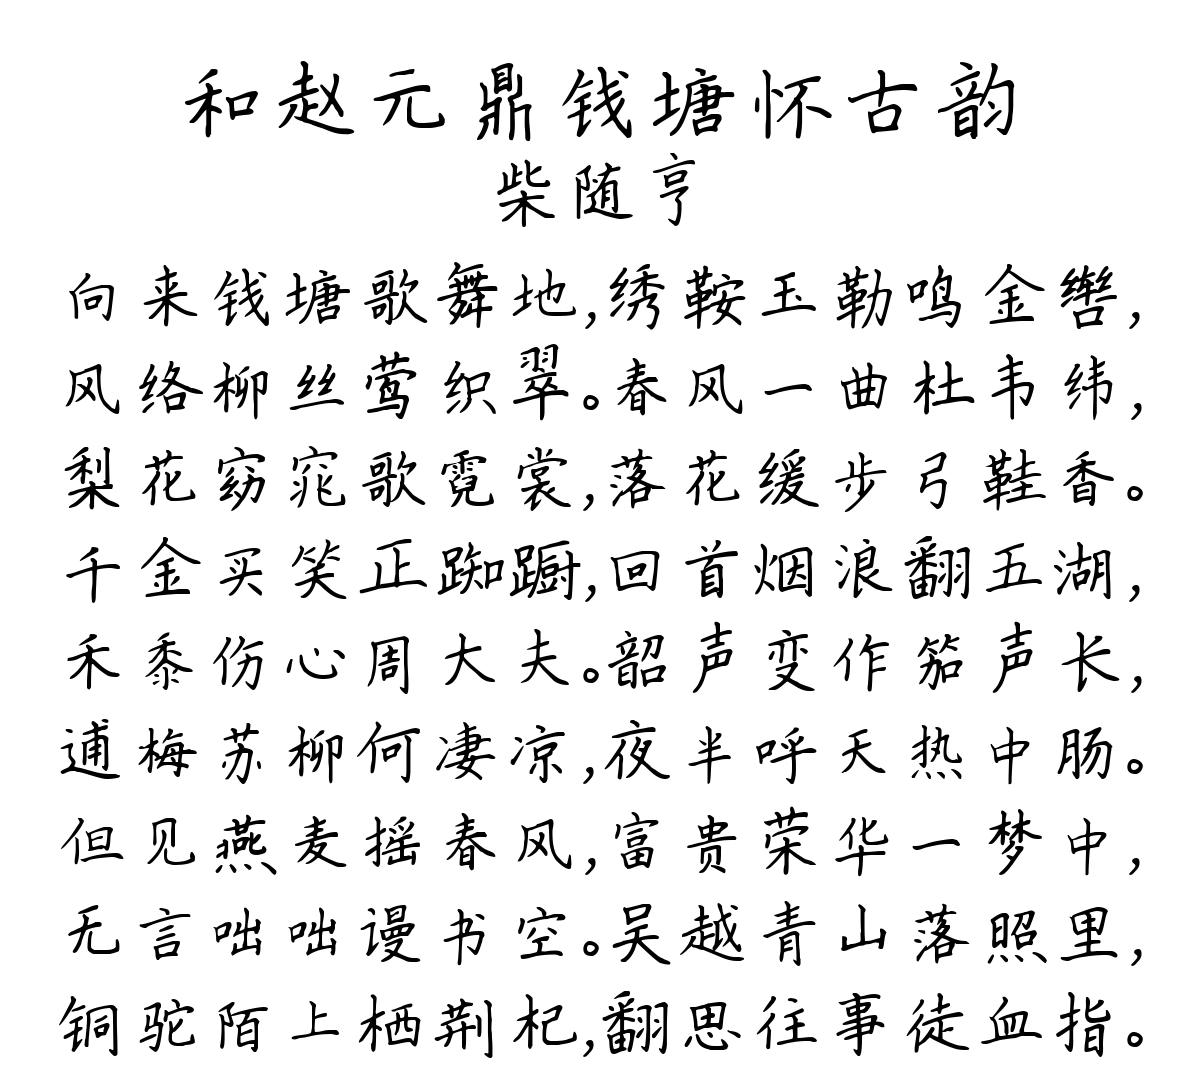 和赵元鼎钱塘怀古韵
柴随亨
向来钱塘歌舞地,绣鞍玉勒鸣金辔,
风络柳丝莺织翠。春风一曲杜韦纬,
梨花窈窕歌霓裳,落花缓步弓鞋香。
千金买笑正踟蹰,回首烟浪翻五湖,
禾黍伤心周大夫。韶声变作笳声长,
逋梅苏柳何凄凉,夜半呼天热中肠。
但见燕麦摇春风,富贵荣华一梦中,
无言咄咄谩书空。吴越青山落照里,
铜驼陌上栖荆杞,翻思往事徒血指。